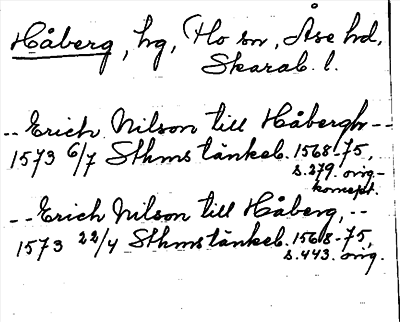 Håberg, hg, Flo sn, Åse hd,
Skarab. l.
-- Erich Nilson till Håbergh --
1573 6/7 Sthms tänkeb. 1568-75,
s. 279. orig-
koncept.
-- Erich Nilson till Håberg, --
1573 22/4 Sthms tänkeb. 1568-75,
s. 443. orig.